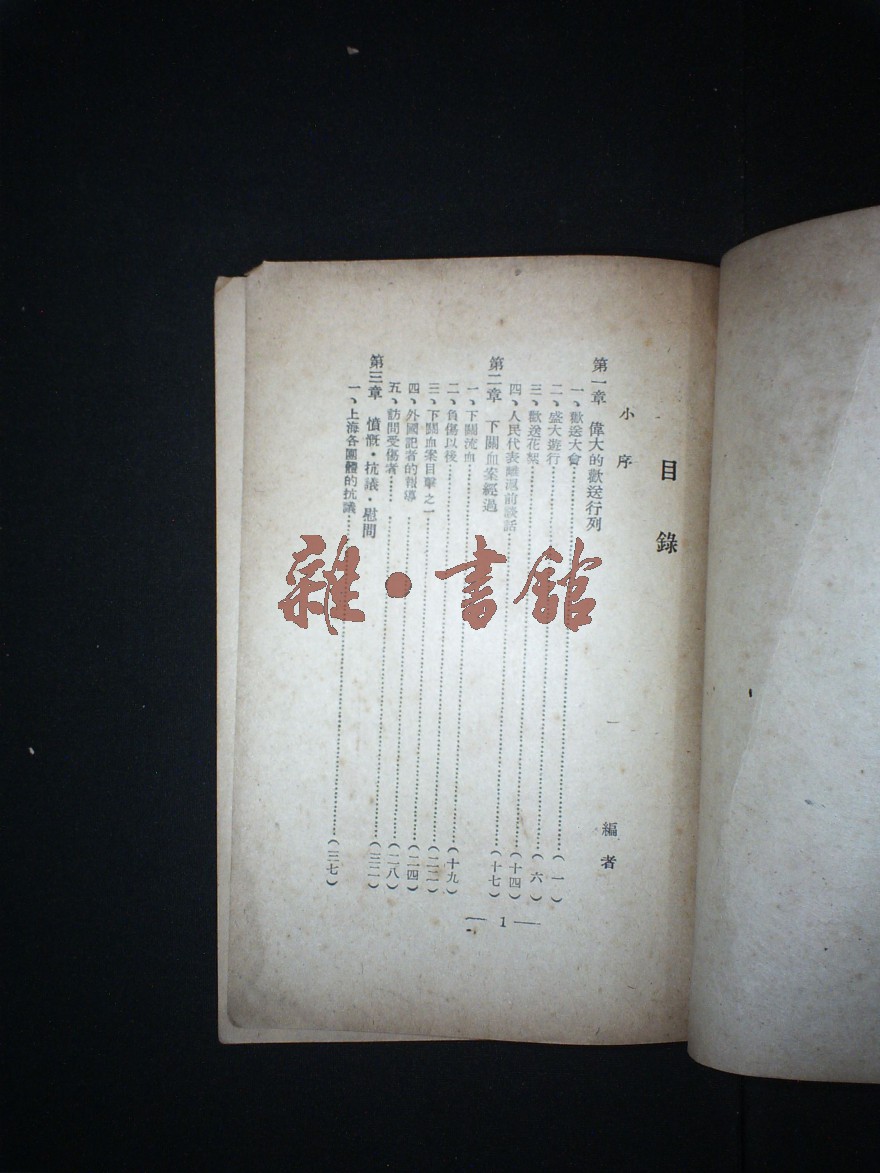 目錄
小序 編者
第一章 偉大的歡送行列
一、歡送大會……(一)
二、盛大遊行……(六)
三、歡送花絮……(十四)
四、人民代表離滬前談話……(十七)
第二章 下關血案經過
一、下關流血……(十九)
二、負傷以後……(二二)
三、下關血案目擊之一……(二四)
四、外國記者的報導……(二八)
五、訪問受傷者……(三二)
第三章 憤慨・抗議・慰問
一、上海各團體的抗議……(三七)
— 1 —
雜・書館